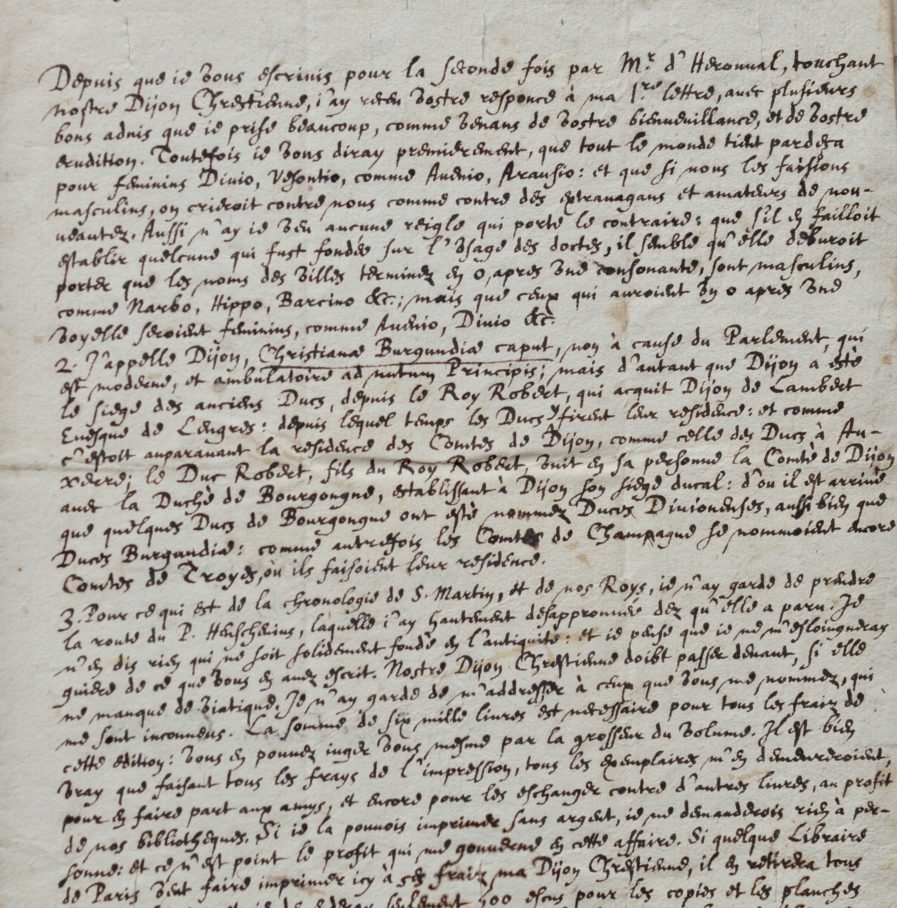 Depuis que ie vous escriuis pour la seconde fois par Mr. d'Herouual, touchant
nostre Dijon Chrestienne, i'ay receu vostre responce à ma 1.re lettre, auec plusieurs
bons aduis que ie prise beaucoup, comme venans de vostre bienueuillance, et de vostre
erudition. Toutefois ie vous diray premierement, que tout le monde tient pardeça
pour feminins Diuio, Vesontio, comme Auenio, Arausio: et que si nous les faisions
masculins, on crieroit contre nous comme contre des extrauagans et amateurs de nou-
ueautez. Aussi n'ay ie veu aucune reigle qui porte le contraire: que s'il en failloit
establir quelcune qui fust fondée sur l'vsage des doctes, il semble qu'elle deburoit
porter que les noms des villes terminez en o, apres vne consonante, sont masculins,
comme Narbo, Hippo, Barcino &c.; mais que ceux qui auroient vn o apres vne
voyelle seroient feminins, comme Auenio, Diuio &c.
2. J'appelle Dijon, Christianæ Burgundiæ caput, non à cause du Parlement, qui
est moderne, et ambulatoire ad nutum Principis; mais d'autant que Dijon a esté
le siege des anciens Ducs, depuis le Roy Robert, qui acquit Dijon de Lambert
Euesque de Lengres: depuis lequel temps les Ducs y firent leur residēce: et comme
c'estoit auparauant la residence des Comtes de Dijon, comme celle des Ducs à Au-
xerre; le Duc Robert, fils du Roy Robert, vnit en sa personne la Comté de Dijon
auec la Duché de Bourgongne, establissant à Dijon son siege ducal: d'ou il est arriué
que quelques Ducs de Bourgongne ont esté nommez Duces Diuionenses, aussi bien que
Duces Burgundiæ: comme autrefois les Comtes de Champagne se nommoient encore
Comtes de Troyes, où ils faisoient leur residence.
3. Pour ce qui est de la chronologie de S. Martin, et de nos Roys, ie n'ay garde de prendre
la route du P. Henschenius, laquelle i'ay hautement desapprouuée dez qu'elle a paru. Je
n'en dis rien qui ne soit solidement fondé en l'antiquité: et ie pense que ie ne m'esloingneray
guiere de ce que vous en auez escrit. Nostre Dijon Chrestienne doibt passer deuant, si elle
ne manque de viatique. Je n'ay garde de m'addresser à ceux que vous me nommez, qui
me sont inconneus. La somme de six mille liures est necessaire pour tous les fraiz de
cette edition: vous en pouuez iuger vous mesme par la grosseur du volume. Il est bien
vray que faisant tous les frays de l'impression, tous les exemplaires m'en demeureroient,
pour en faire part aux amys, et encore pour les eschanger contre d'autres liures, au profit
de nos bibliotheques. Si ie la pouuois imprimer sans argent, ie ne demanderois rien à per-
sonne: et ce n'est point le profit qui me gouuerne en cette affaire. Si quelque Libraire
de Paris vient faire imprimer icy à ses fraiz ma Dijon Chrestienne, il en retirera tous
seulement 400 escus pour les copies et les planches